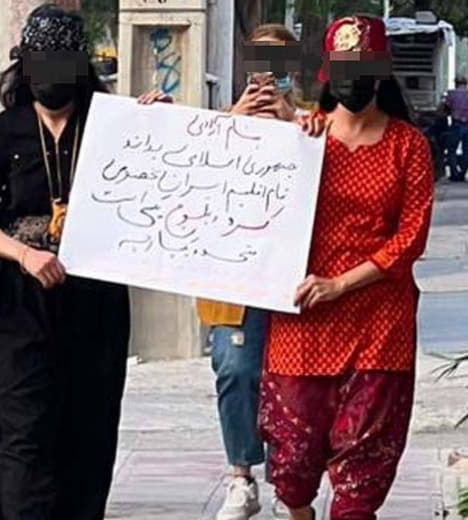 بنام آزادی
جمهوری اسلامی بداند
تمام اقلیم ایران بخصوص
کرد و بلوچ
متحد و